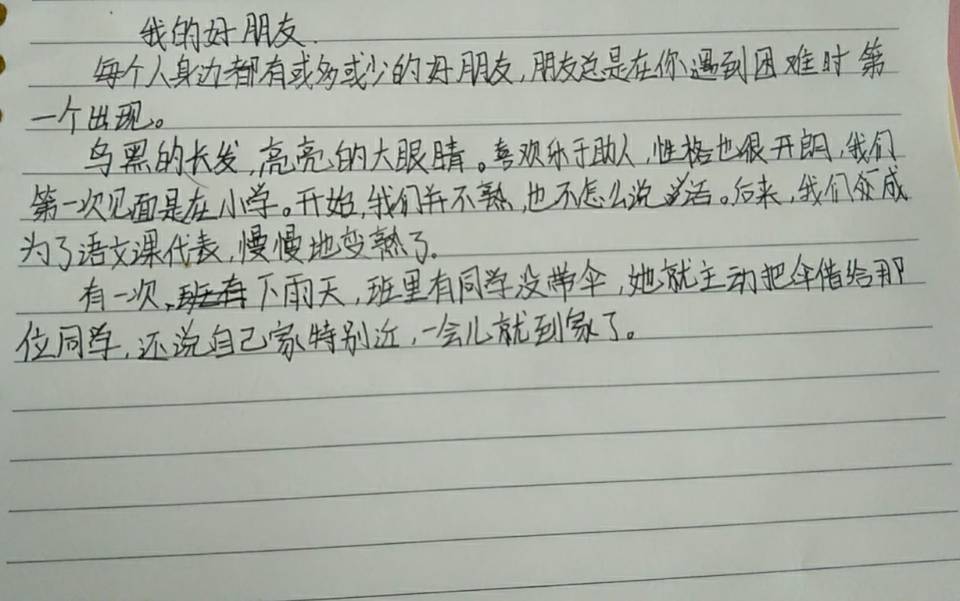 我的好朋友.
每个人身边都有或多或少的好朋友,朋友总是在你遇到困难时第
一个出现。
乌黑的长发,亮亮的大眼睛。喜欢乐于助人,性格也很开朗,我们
第一次见面是在小学。开始,我们并不熟,也不怎么说话。后来,我们变成
为了语文课代表,慢慢地变熟了.
有一次,下雨天,班里有同学没带伞,她就主动把伞借给那
位同学,还说自己家特别近,一会儿就到家了。